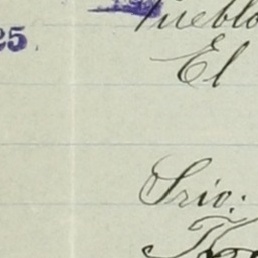 Pueblo
25.
El
Srio.